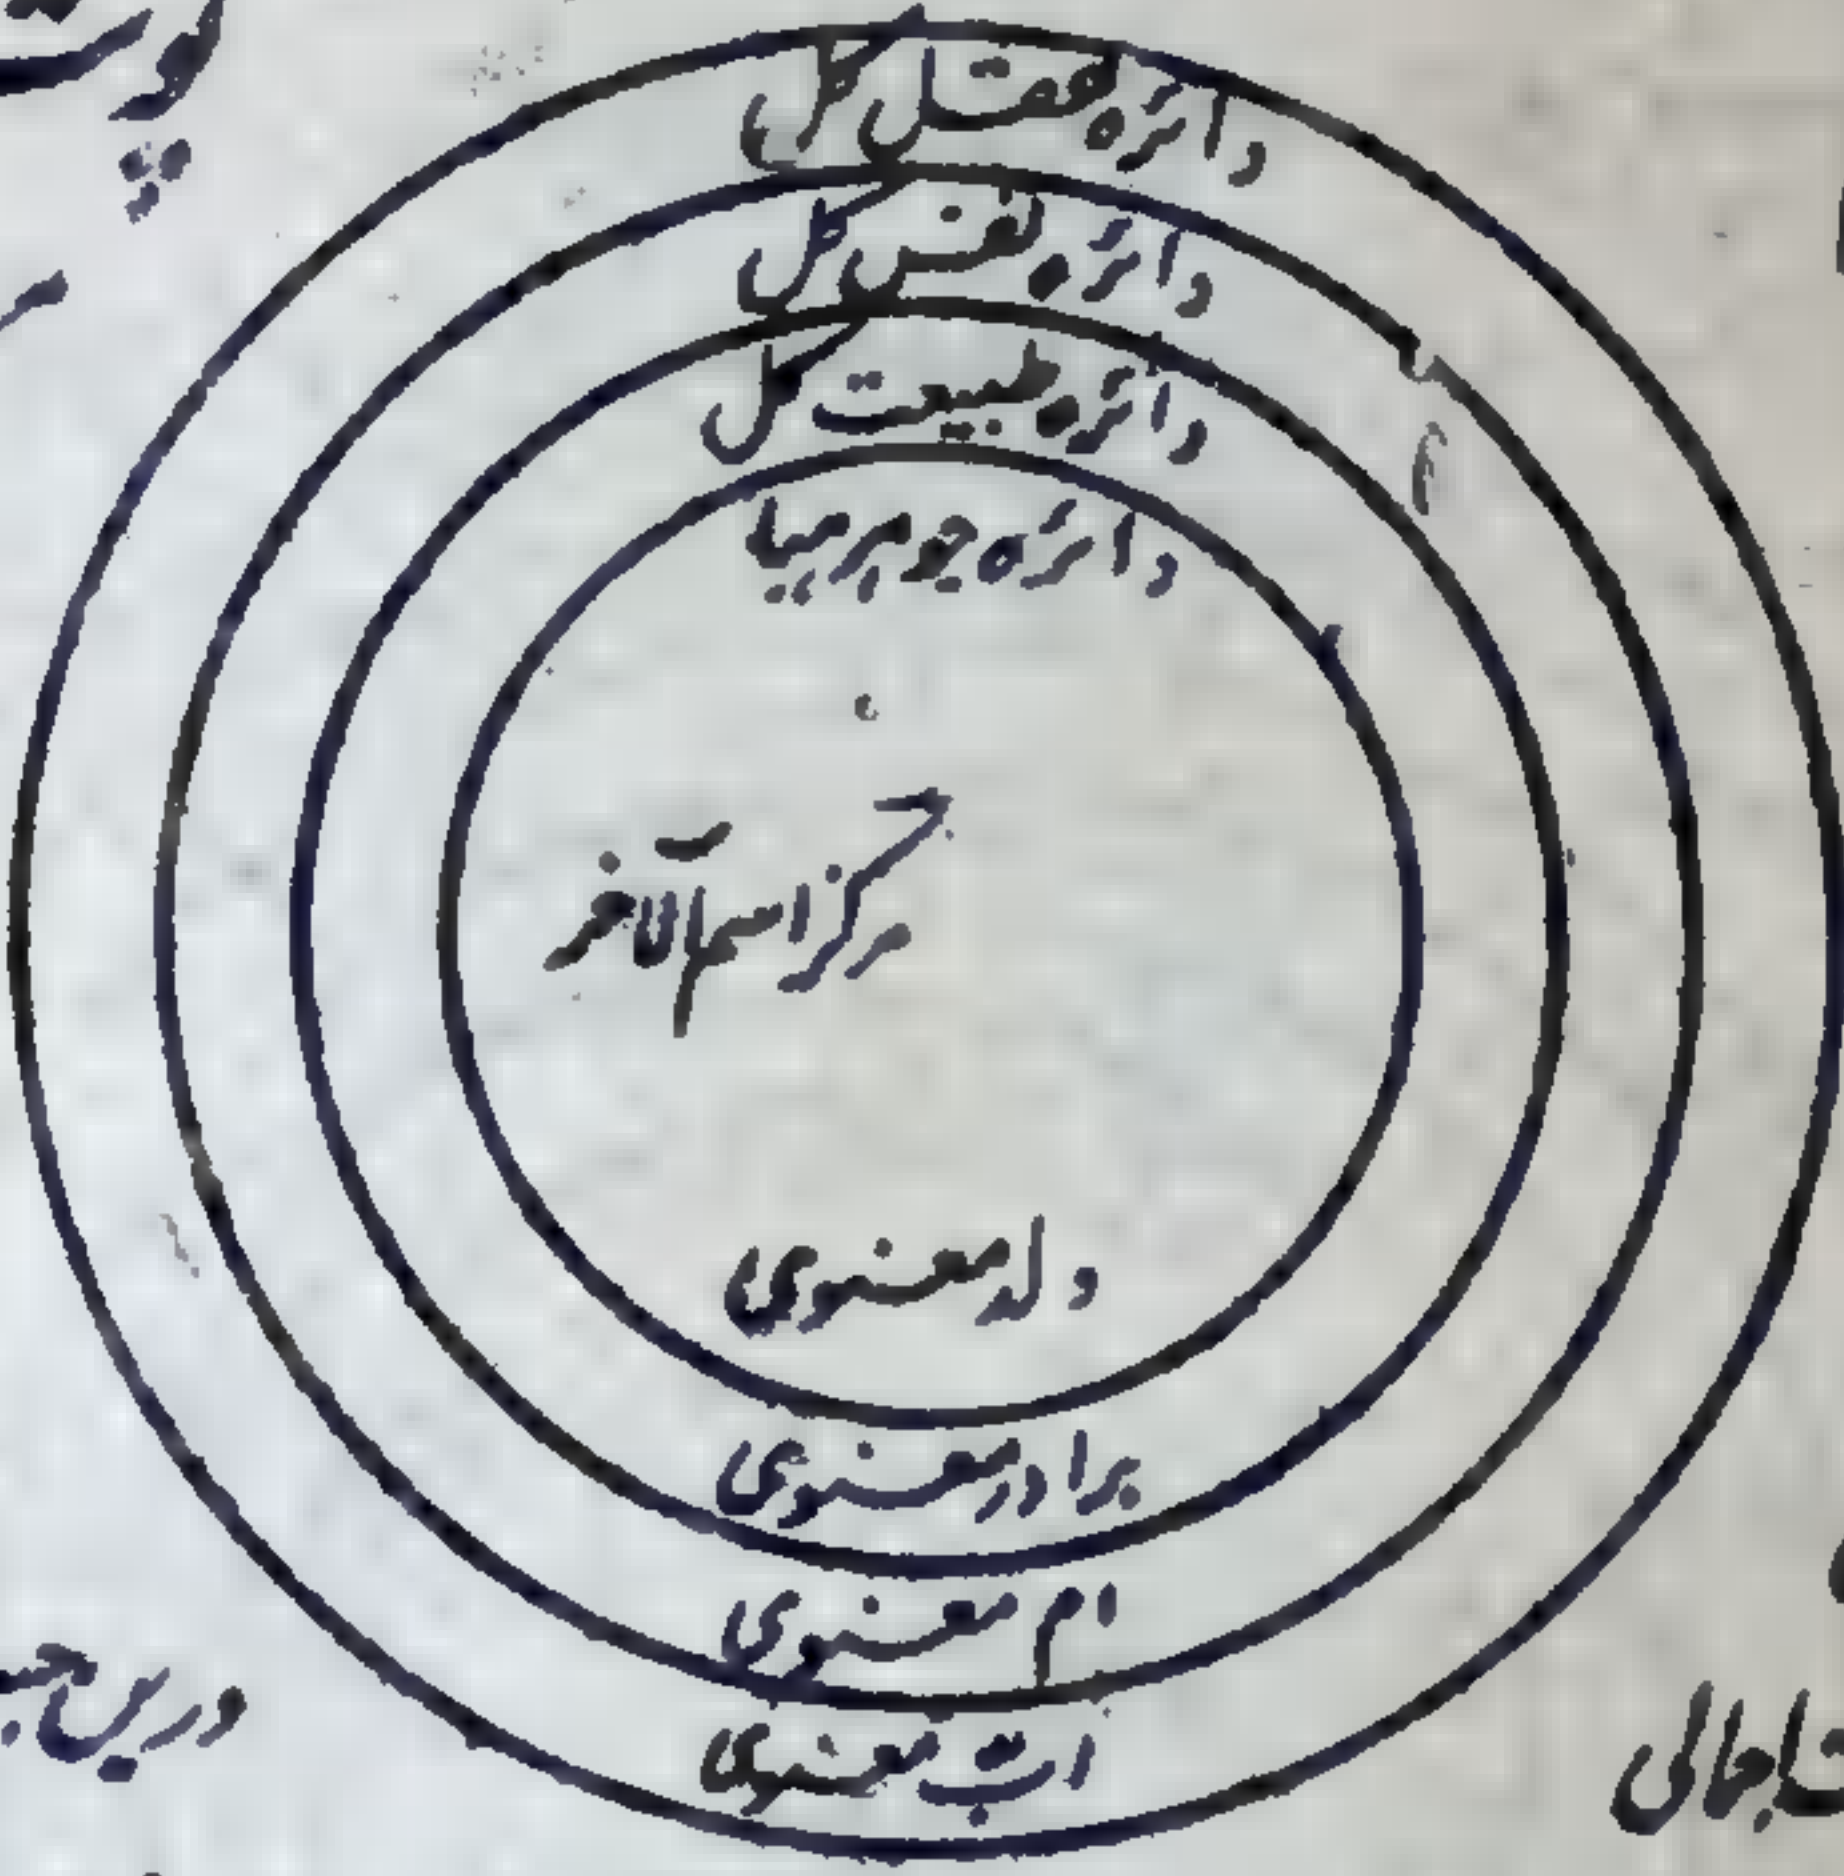 دائرہ عقل کل
دائرہ نفس کل
دائرہ طبیعت کل
دائرہ جوہر ہبا
مرکز اسم الآخر
ولد معنوی
برادر معنوی
ام معنوی
اب معنوی
اجمالی